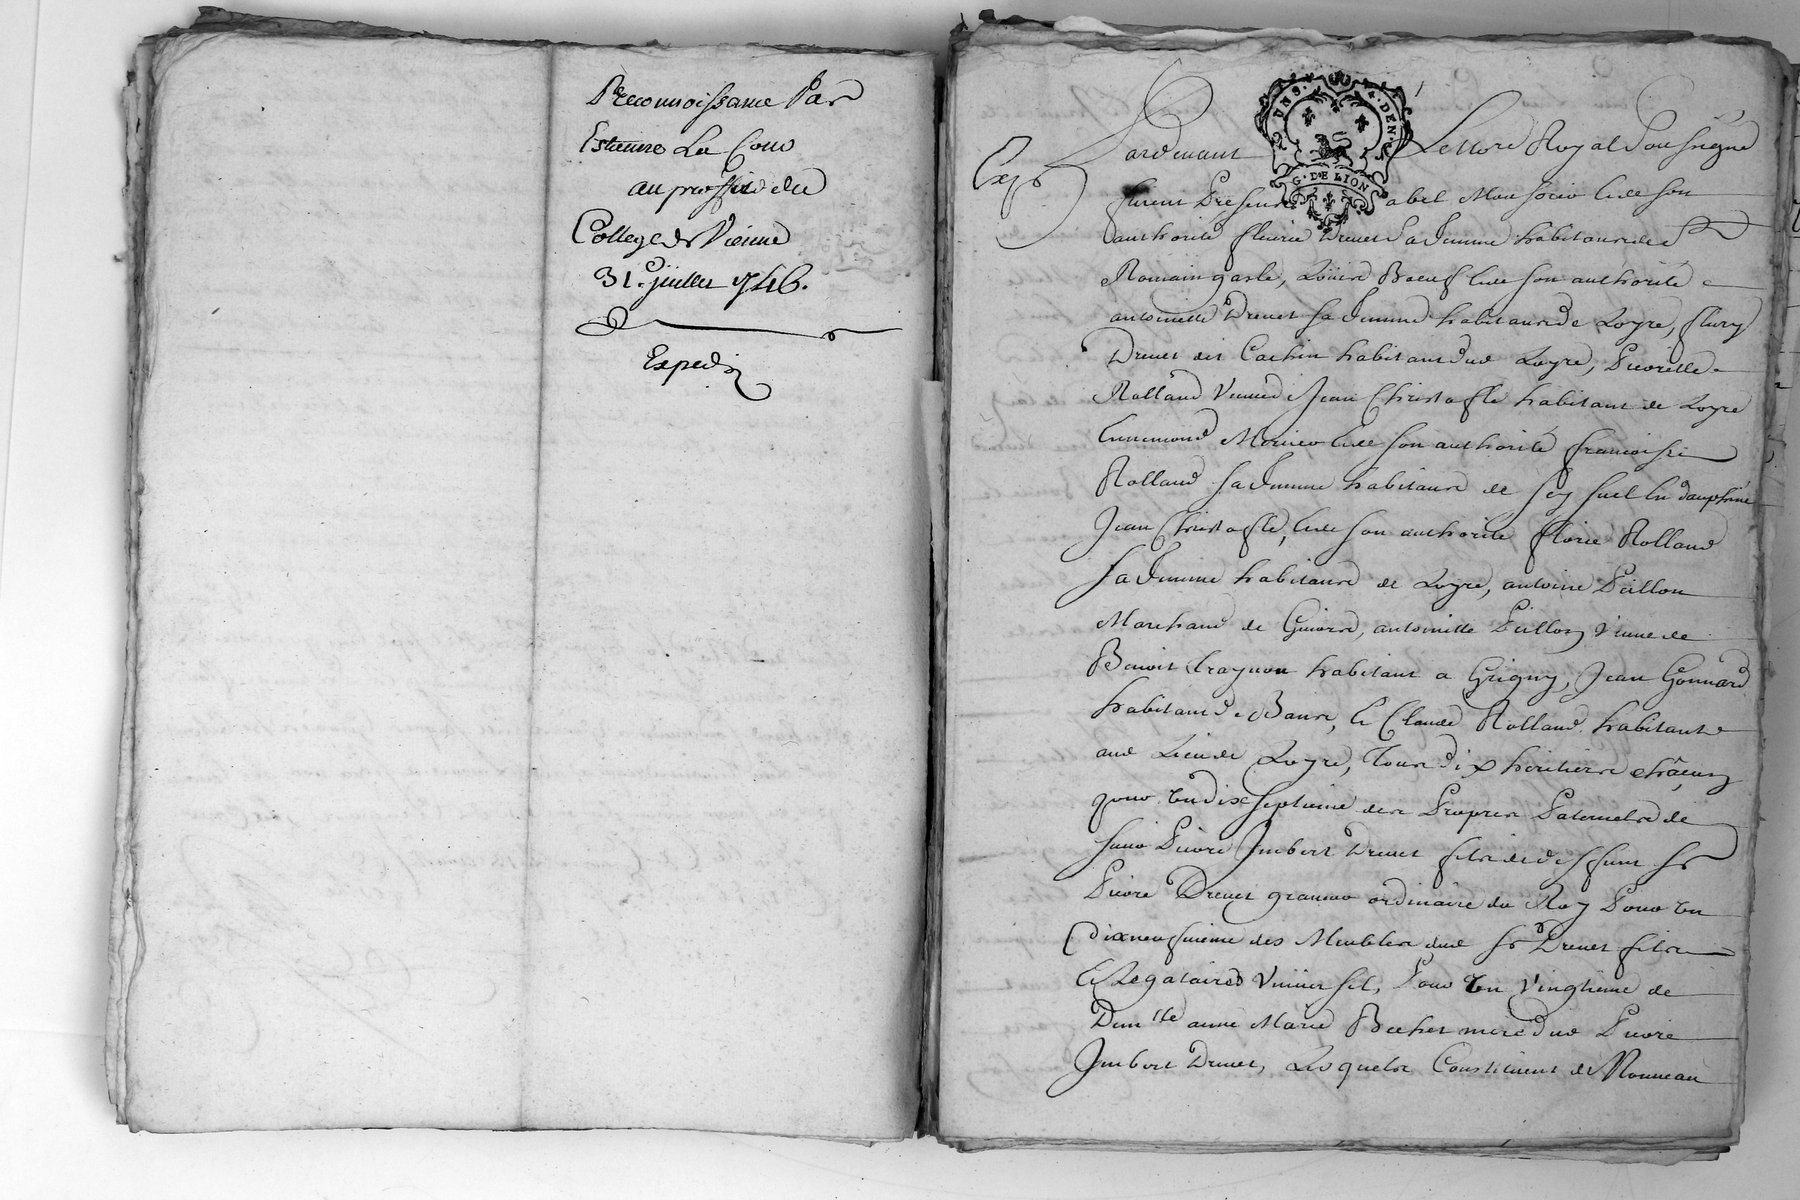 Reconnoissance Par
Estienne La Cour
au proffit du
College de Vienne
31.e juillet 1746.
Expedié
UN S. 4. DEN.
G. DE LION
Pardevant Le Nore Royal Soussigné
furent Presens abel Mou de son
authorité fleurie Drevet Sa femme habitans de St
Romain , Boeuf de son authorité
antoinette Drevet sa femme habitans de Loyre, flury
Drevet dit Cachin habitant dud Loyre, Pierrette
Rolland Veuve de Jean Christofle habitant de Loyre
Ennemond de son authorité francoise
Rolland sa femme habitans de Seysuel En dauphiné
Jean Christofle, de son authorité florie Rolland
sa femme habitans de Loyre, antoine Pillon
Marchand de Givors, antoinette Pillon Veuve de
Benoit habitant a Grigny, Jean Gonnard
habitant de , Et Claude Rolland habitant
aud Lieu de Loyre, Tous dix heritiers chacun
pour Un dix septieme des Propres Paternels de
sieur Pierre Imbert Drevet fils de deffunt Sr
Pierre Drevet graveur ordinaire du Roy Pour Un
dixneufvieme des Meubles dud Sr Drevet fils
Et Legataires Pour Un Vingtieme de
Dem.lle anne Marie Bechet mere dud Pierre
Imbert Drevet, Lesquels Constituent de Nouveau